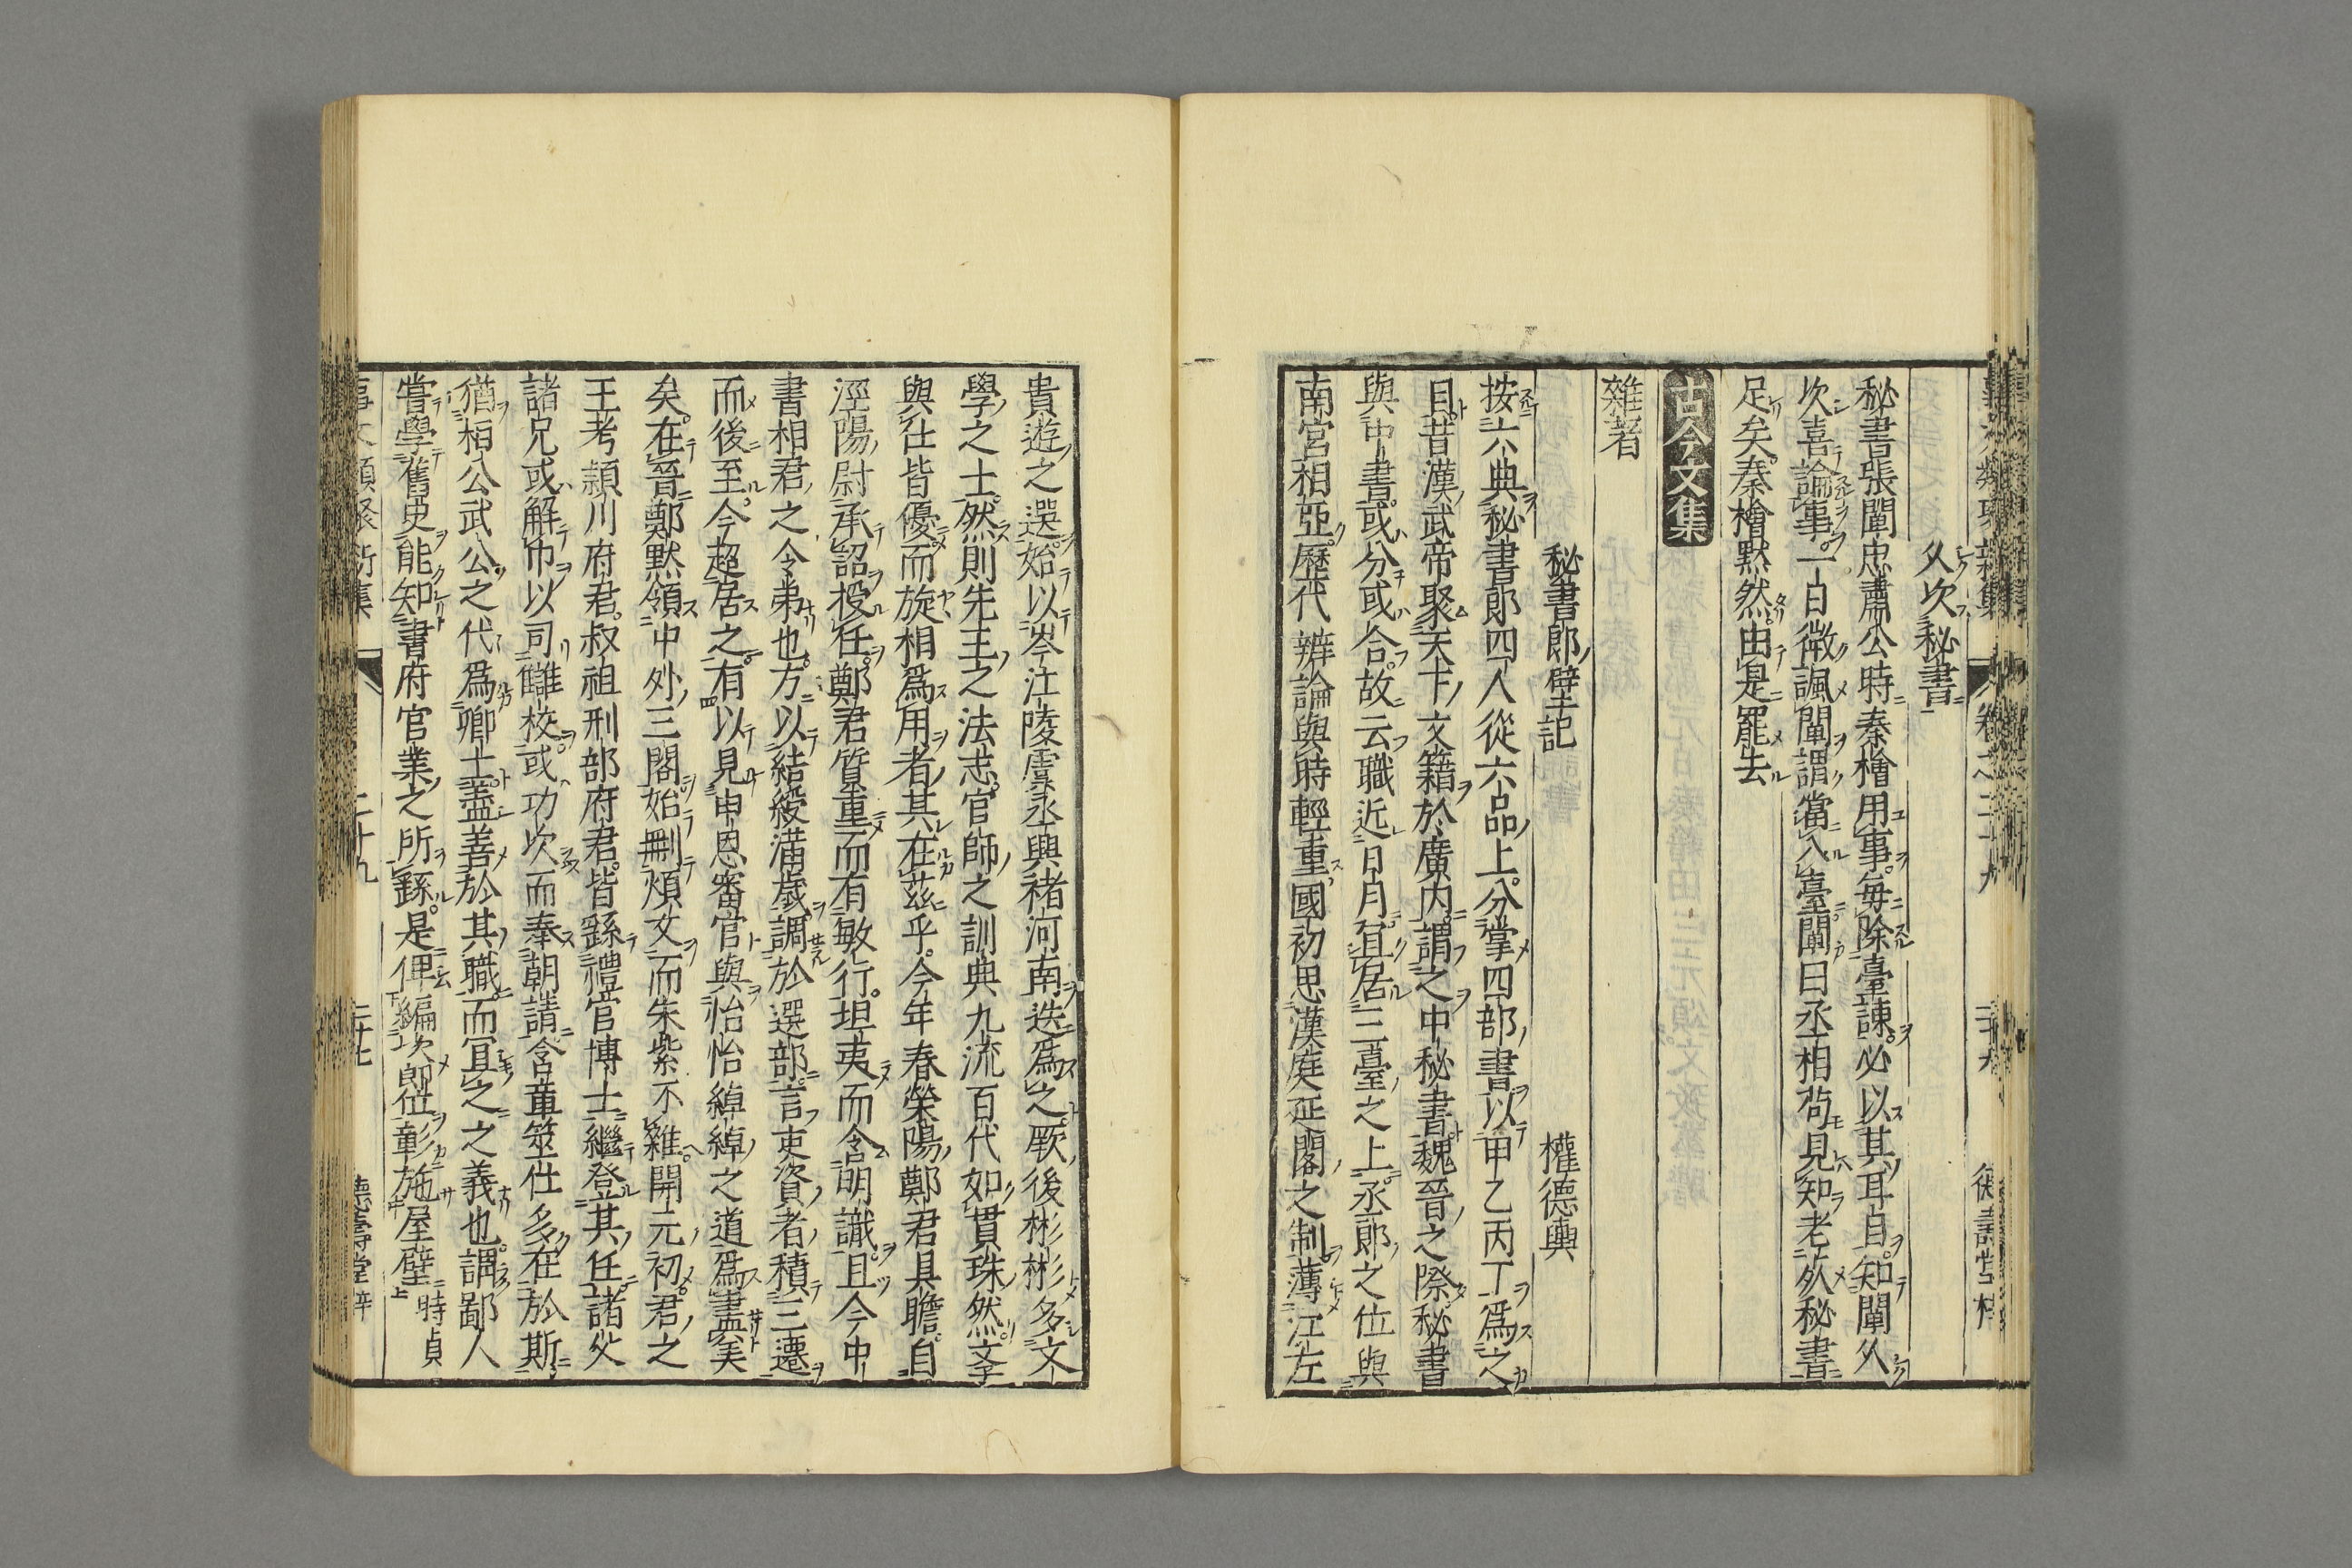 久次秘書
秘書張闡忠肅公時秦檜用事每除臺諫必以其耳目知闡久
次喜論事一日微諷闡謂當入臺闡曰丞相苟見知老於秘書
足矣秦檜默然由是罷去
古今文集
雜著
秘書郎壁記
權德輿
按六典秘書郎四人從六品上分掌四部書以甲乙丙丁爲之
目昔漢武帝聚天下文籍於廣內謂之中秘書魏晉之際秘書
與中書或分或合故云職近日月宜居三臺之上丞郎之位與
南宮相亞歷代辨論與時輕重國初思漢庭延閣之制薄江左
貴遊之選始以岑江陵虞丞與褚河南迭爲之厥後彬彬多文
學之士然則先王之法志官師之訓典九流百代如貫珠然文學
與仕皆優而旋相爲用者其在茲乎今年春滎陽鄭君具瞻自
涇陽尉承詔授任鄭君質重而有敏行坦夷而含明識且今中
書相君之令弟也方以結綬滿歲調於選部言吏資者積三遷
而後至今超居之有以見申恩審官與怡怡綽綽之道爲盡美
矣在晉鄭默領中外三閣始刪煩文而朱紫不雜開元初君之
王考潁川府君叔祖刑部府君皆繇禮官博士繼登其任諸父
諸兄或解巾以司讎校或功次而奉朝請含章筮仕多在於斯
猶桓公武公之代爲卿士蓋善於其職而宜之之義也謂鄙人
嘗學舊史能知書府官業之所繇是俾編次郎位彰施屋壁時貞
事文類聚新集
二十九
二十七
德壽堂梓